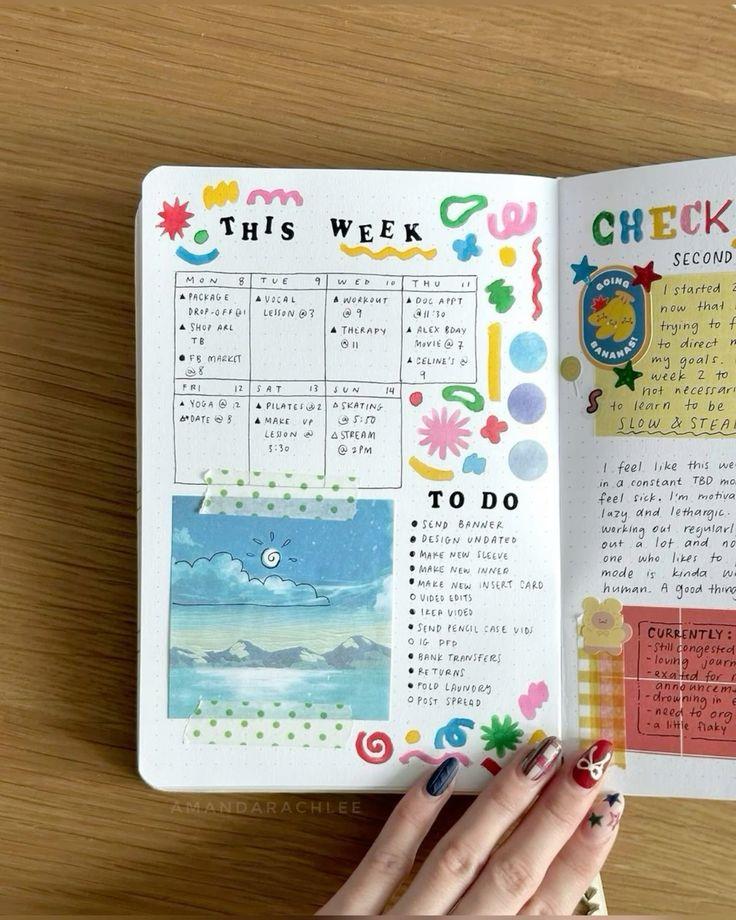 THIS WEEK
MON 8
▲ PACKAGE
DROP-OFF @1
▲ SHOP ARL
TB
● FB MARKET
@ 8
TUE 9
▲ VOCAL
LESSON @ 3
WED 10
▲ WORKOUT
@ 9
▲ THERAPY
@ 11
THU 11
▲ DOC APPT
@ 11:30
▲ ALEX BDAY
MOVIE @ 7
▲ CELINE'S @
9
FRI 12
▲ YOGA @ 12
DATE @ 8
SAT 13
▲ PILATES @ 2
▲ MAKE UP
LESSON @
3:30
SUN 14
△ SKATING
@ 5:50
△ STREAM
@ 2PM
TO DO
● SEND BANNER
● DESIGN UNDATED
● MAKE NEW SLEEVE
● MAKE NEW INNER
● MAKE NEW INSERT CARD
○ VIDEO EDITS
● IKEA VIDEO
● SEND PENCIL CASE VIDS
○ IG PFP
● BANK TRANSFERS
● RETURNS
● FOLD LAUNDRY
○ POST SPREAD
CHECK
SECOND
GOING
BANANAS!
I started 2
now that
trying to f
to direct m
my goals.
week 2 to
not necessari
to learn to be
SLOW & STEA
I feel like this we
in a constant TBD mo
feel sick. I'm motiva
lazy and lethargic.
working out regularl
out a lot and no
one who likes to
mode is kinda w
human. A good thing
CURRENTLY:
- still congested
- loving journ
- excited for n
announcem
- drowning in e
- need to org
- a little flaky
AMANDARACHLEE